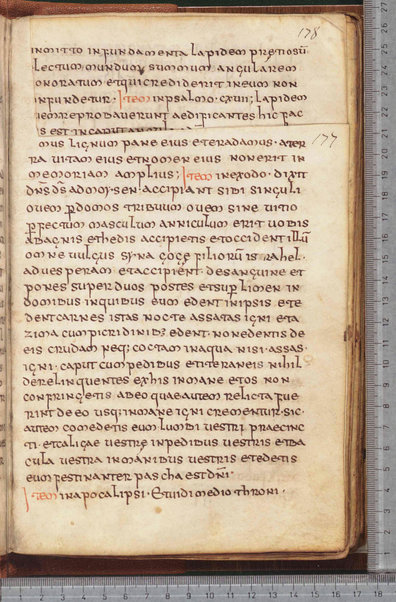 178
inmitto infundamenta lapidem pretiosū
lectum mundum summum angularem
onoratum et qui crediderit in eum non
infundetur; Item in psalmo cxvii; lapidem
quem reprobaverunt aedificantes hic fac
177
mus lignum pane eius et eradamus a ter
ra vitam eius et nomen eius non erit in
memoriam amplius; Item in exodo. dixit
dns ad moysen. accipiant sibi singuli
ovem per domos tribuum ovem sine vitio
perfectum masculum anniculum erit vobis
ab agnis et hedis accipietis et occident illū
omne vulgus
filiorū israhel.
ad vesperam et accipient de sanguine et
pones super duos postes et sup limen in
domibus in quibus eum edent in ipsis et e
dent carnes istas nocte assatas igni et a
zima cum picridinibus edent. non edentis de
eis crudam neq; coctam in aqua nisi assas.
igni. caput cum pedibus et interaneis nihil
derelinquentes ex his in mane et os non
confringetis ab eo quae autem relicta fue
rint de eo usq; in mane igni crementur. sic
autem comedetis eum lumbi vestri praecinc
ti. et caligae vestrę in pedibus vestris et ba
cula vestra in manibus vestris et edetis
eum festinanter pascha est dni.
Item in apocalipsi. Et vidi medio throni.